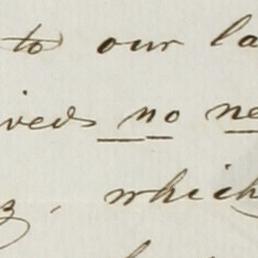 to our la
ived no ne
z, which